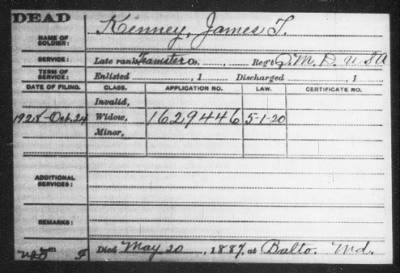 DEAD
NAME OF SOLDIER: Kenney, James T.
SERVICE: Late rank Teamster Co. , Reg't Q. M. D. U S A
TERM OF SERVICE: Enlisted , 1 Discharged , 1
DATE OF FILING. CLASS. APPLICATION NO. LAW. CERTIFICATE NO.
Invalid,
1928-Oct. 24 Widow, 1629446 5-1-20
Minor,
ADDITIONAL SERVICES:
REMARKS:
Died May 20, 1887, at Balto. Md.